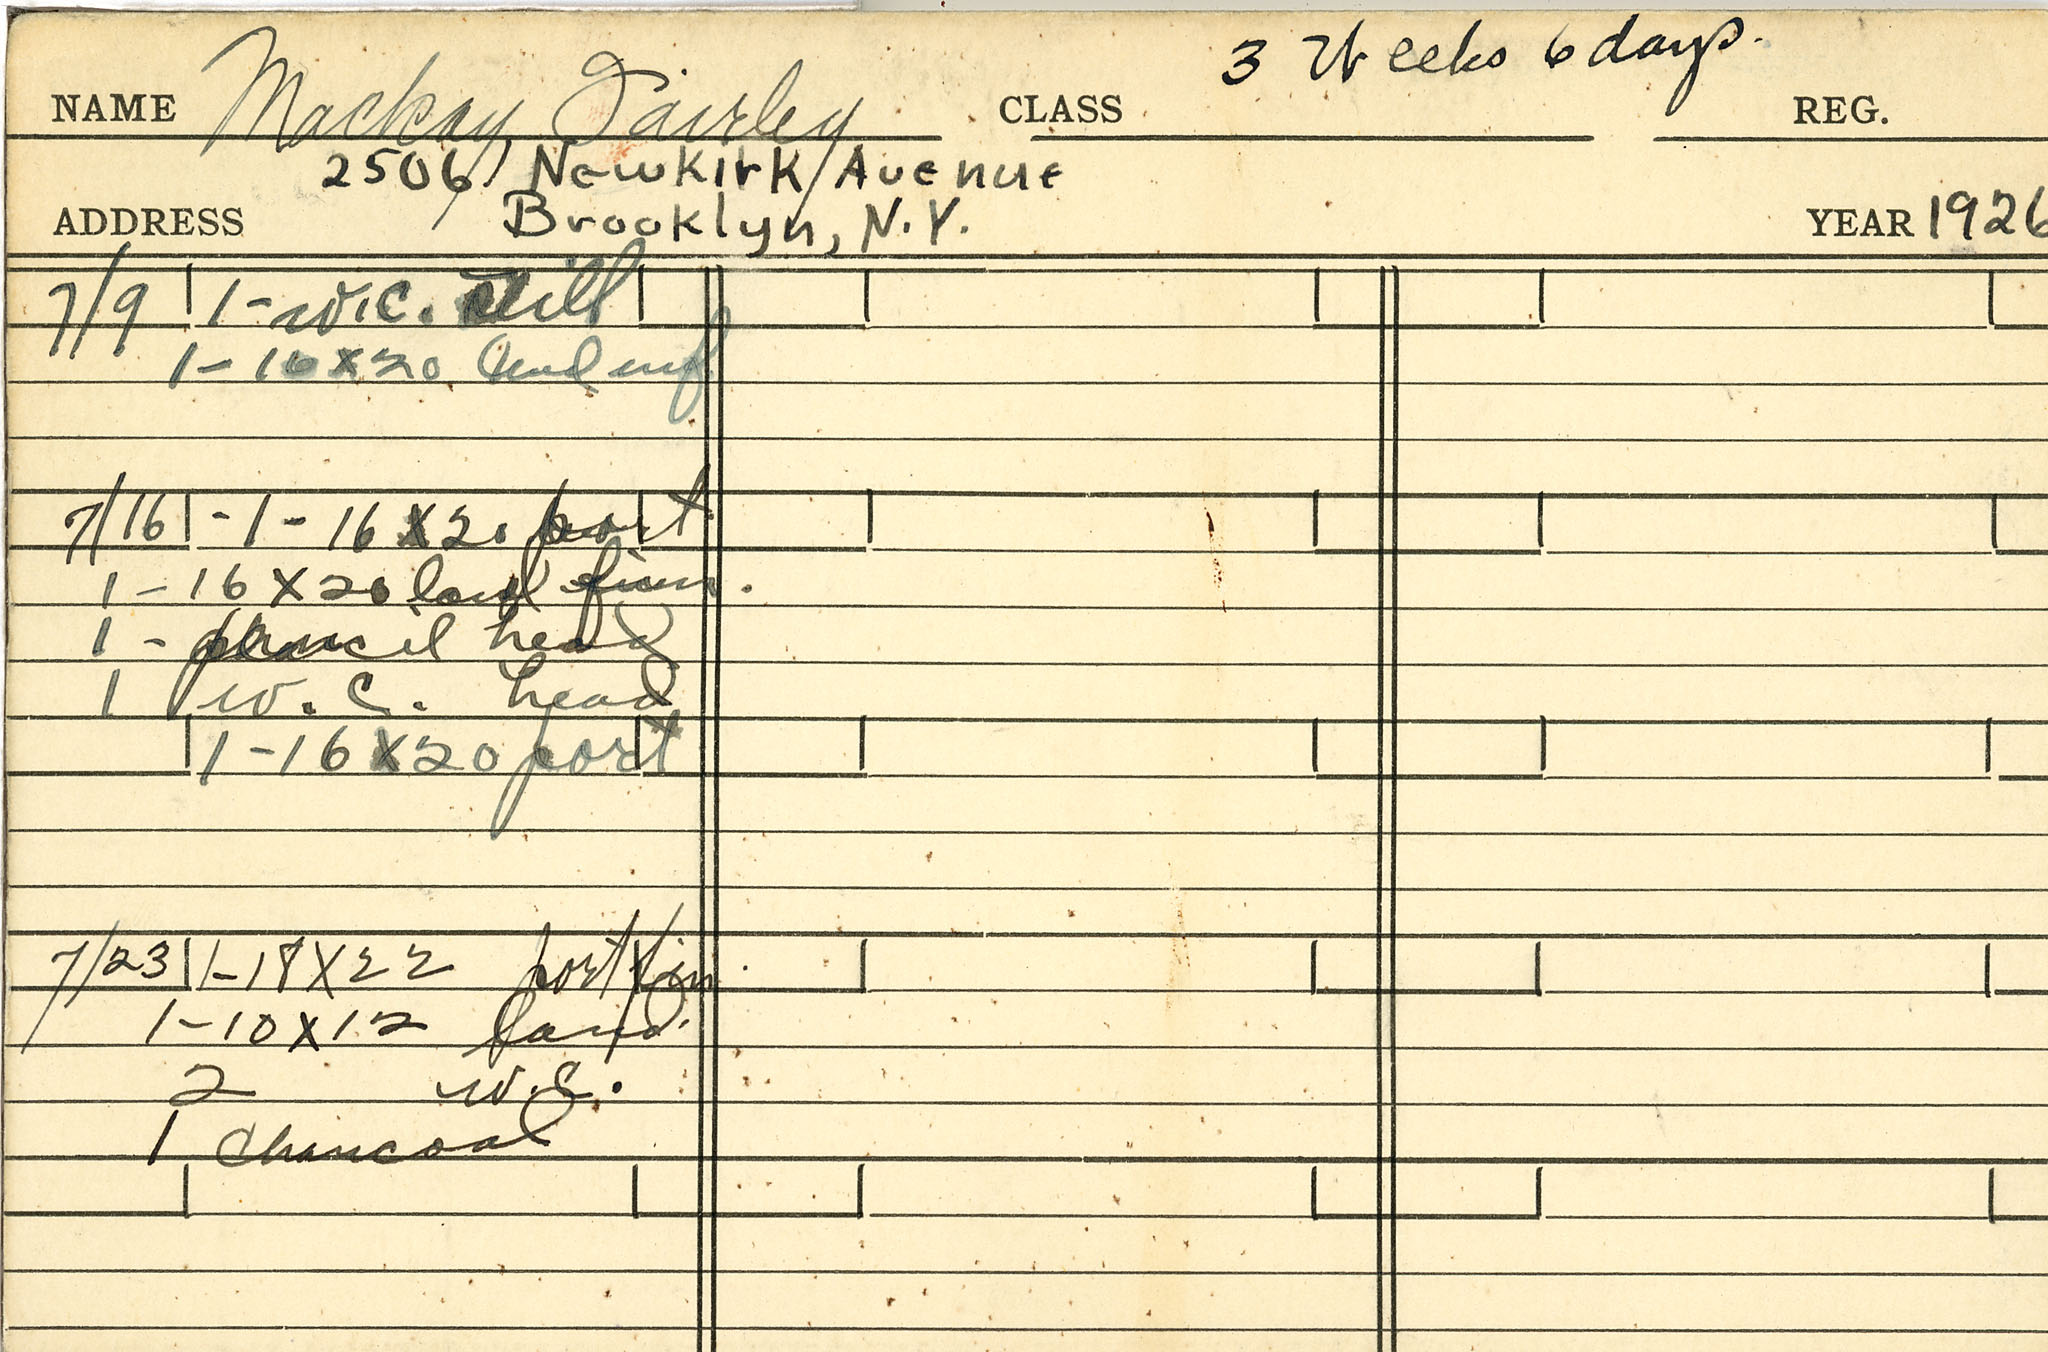 3 Weeks 6 days.
NAME Mackay Fairley CLASS REG.
2506 Newkirk Avenue
ADDRESS Brooklyn, N.Y. YEAR 1926
7/9 1-W.C. still
1-16x20 land unf.
7/16 -1-16 X20 port.
1-16 X 20 land fin.
1- pencil head
1 W.C. head
1-16 X 20 port
7/23 1-18 X 22 port fin.
1-10 X 12 land.
2 W.C.
1 Charcoal